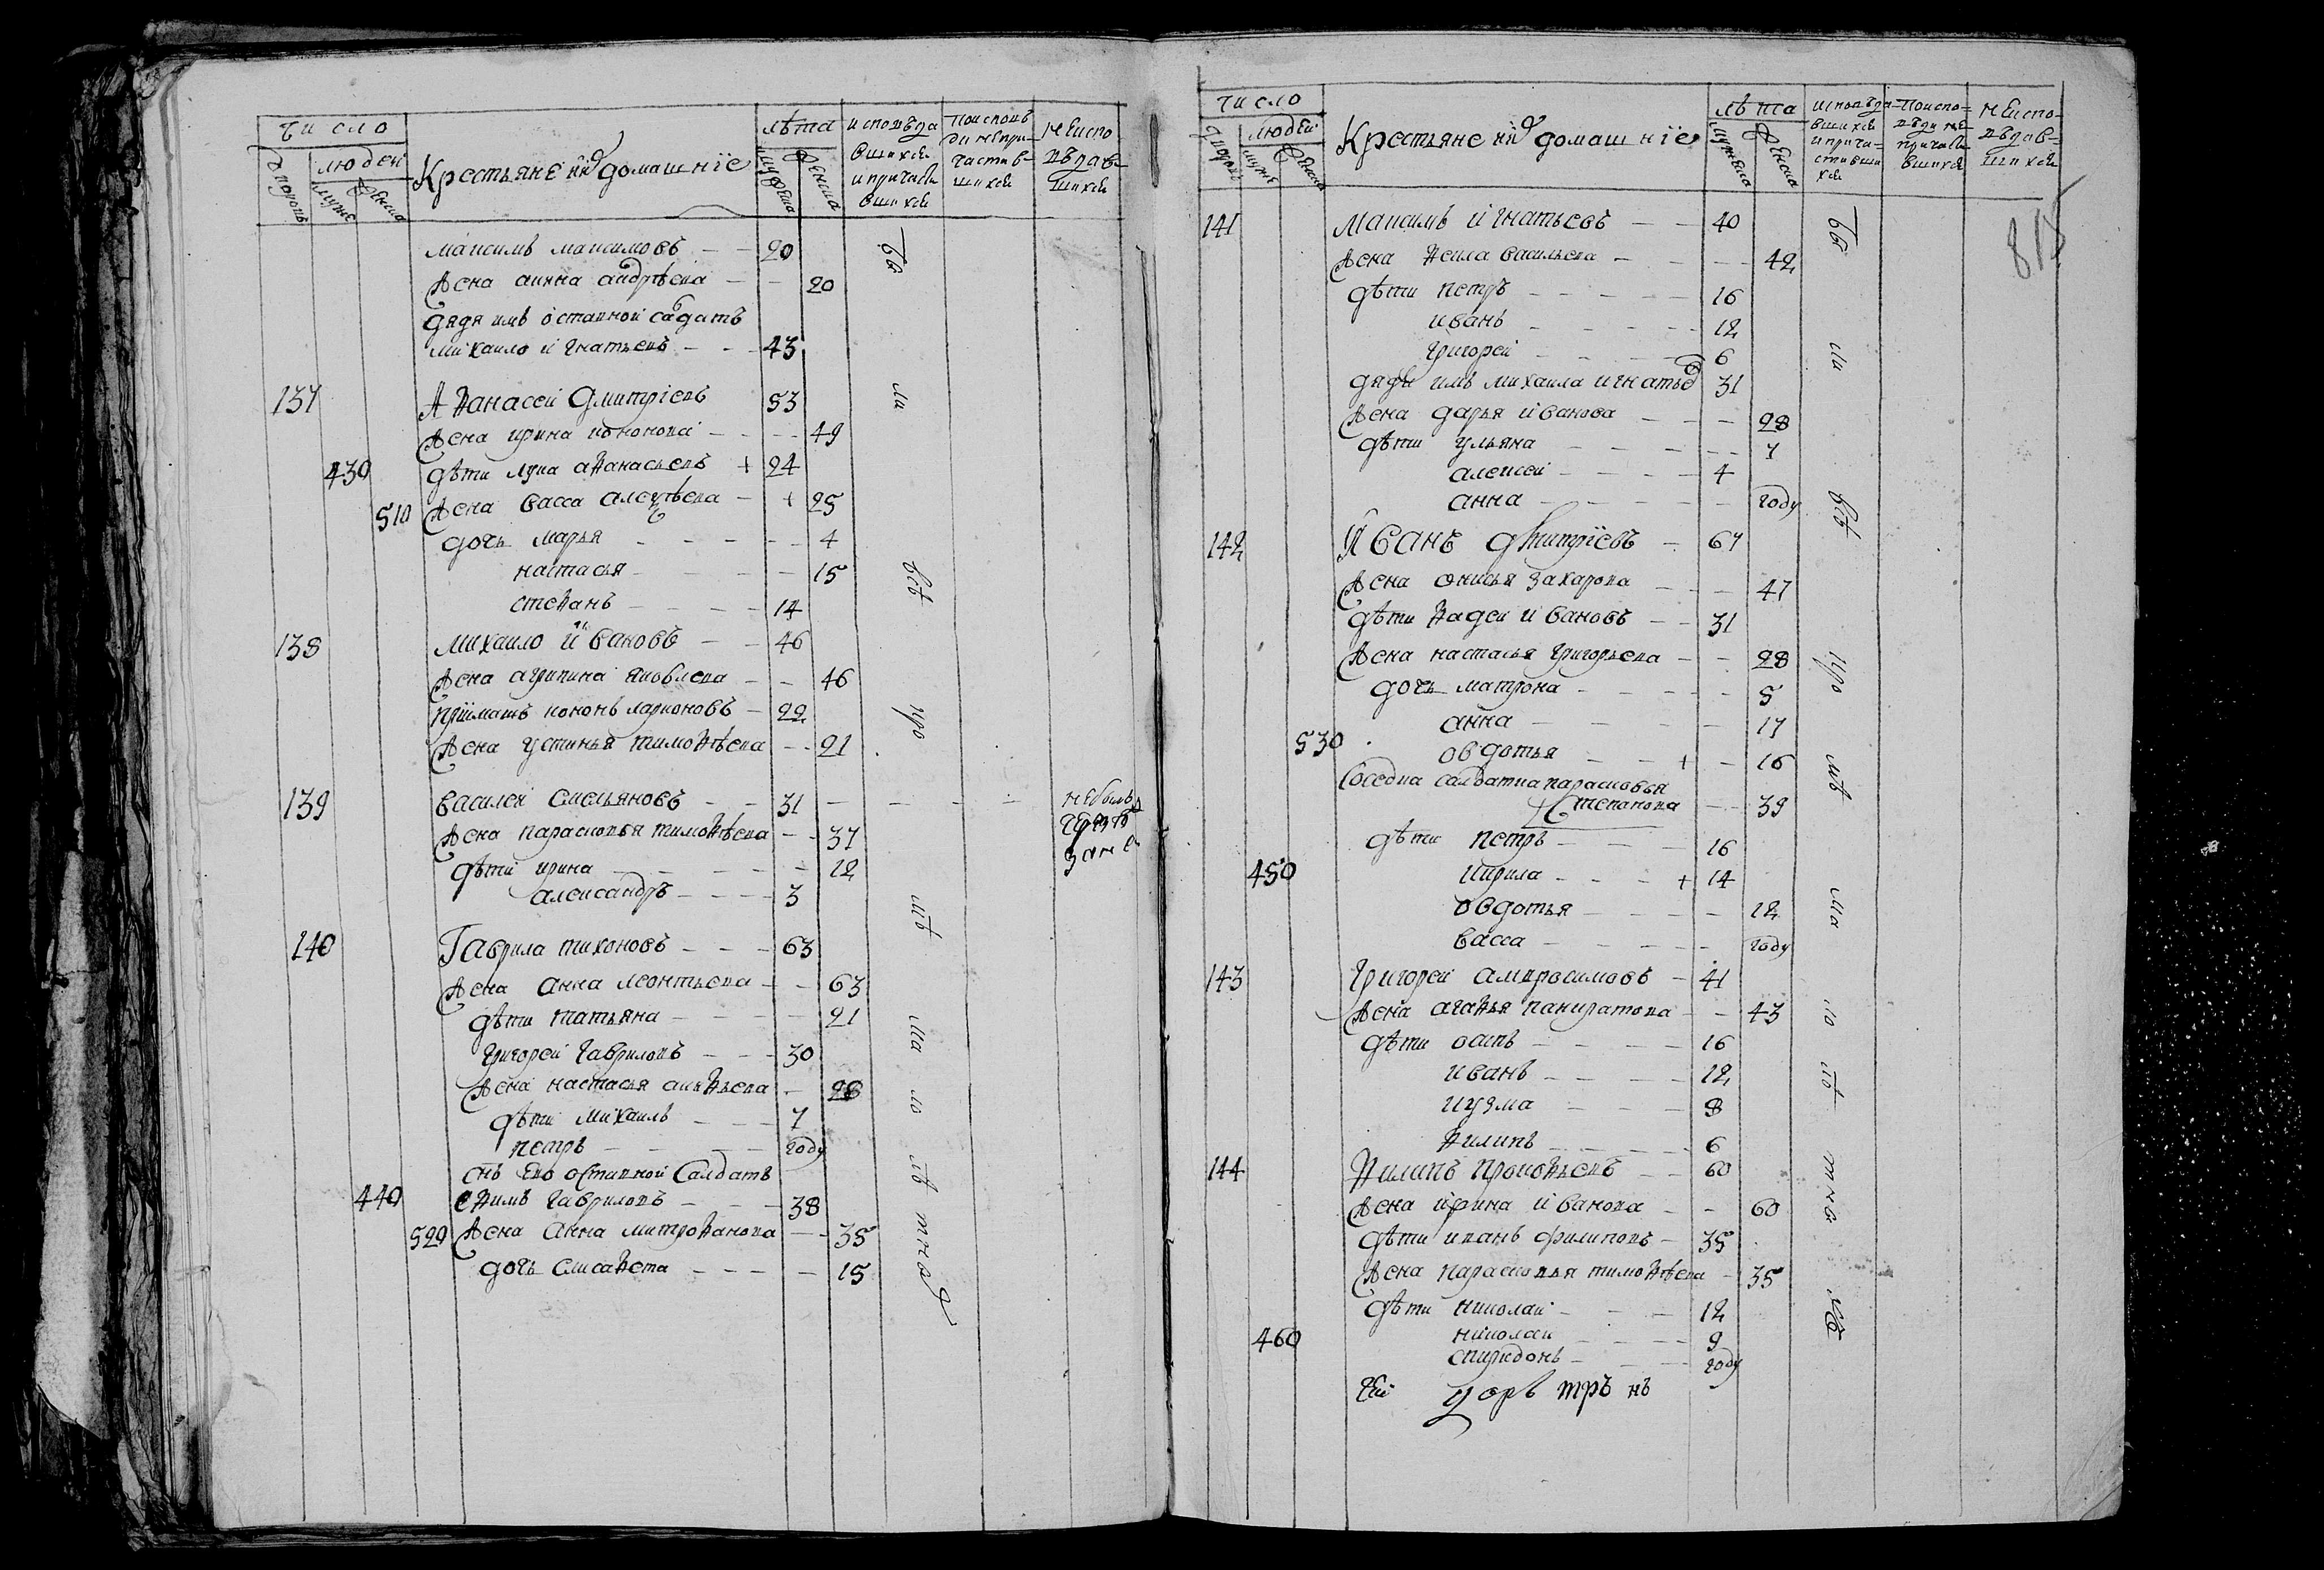 число
люден
дворовъ
муже
женска
Крестьяне ихъ домашніе
лѣта
мужеска
женска
исповѣда
вшихся
и причасти
вшихся
По исповѣ
ди не при-
частив-
шихся
не испо
вѣдав-
шихся
Максимъ Максимовъ - - 20
Жена анна андрѣева - - 20
дядя имъ отставной садатъ
Михаило игнатьевъ - - 43
137 Афанасей Дмитріевъ 53
Жена ирина кононова - - 49
430 дѣти лука афанасьевъ + 24
510 Жена васса алеѯѣева - + 25
дочь марья - - - 4
настасья - - - 15
стефанъ - - - 14
138 Михаило ивановъ - - 46
Жена агрипина яковлева - - 46
пріимашъ кононъ ларионовъ - 22
Жена устинья тимофѣева - - 21
139 Василей емельяновъ - - 31 - - - - небыль
Жена парасковья тимофѣева - - 37
дѣти ирина - - - 12
александръ - - - 3
140 Гаврила тихоновъ - - - 63
Жена анна леонтьева - - 63
дѣти татьяна - - - - 21
григорей гавриловъ - - - 30
Жена настасья - 28
дѣти михаилъ - - - 7
петръ - - - году
снъ его отставной Салдатъ
440 ефимъ гавриловъ - - - 38
520 Жена анна митрофанова - - 35
дочь елисавета - - - - 15
бы
ли
всѣ
кро
мѣ
ма
ло
лѣ
тна
число
люден
дворовъ
муже
женска
Крестьяне ихъ домашніе
лѣта
мужеска
женска
исповѣда-
вшихся
и прича-
стивши
хся
По испо-
вѣди не
причасти
вшихся
не испо-
вѣдав-
шихся
815
141 Максимъ игнатьевъ - - 40
Жена Фекла васильева - - - 42
дѣти петръ - - - 16
иванъ - - - 12
григорей - - - 6
дядя имъ михаила игнатьев 31
Жена дарья иванова - - - 28
дѣти ульяна - - - 7
алексей - - - 4
анна - - - году
142 Иванъ Дмитріевъ - 67
Жена онисья захарова - - - 47
дѣти Фадеи ивановъ - - 31
Жена настасья григорьева - - 28
дочь матрона - - - 5
анна - - - 17
530 овдотья - - + - 16
Соседка салдатка парасковья
Степанова - - 39
дѣти петръ - - - 16
450 кирила - - - + 14
овдотья - - - 12
васса - - - году
143 григорей амвросимовъ - 41
Жена агафья панкратова - - 43
дѣти осипъ - - - 16
иванъ - - - 12
кузма - - - 8
Филипъ - - - 6
144 Филипъ прокофьевъ - - 60
Жена ирина иванова - - 60
дѣти иванъ филиповъ - 35
Жена парасковья тимофѣева - 35
дѣти николаи - - - 12
460 николаи - - - 9
спиридонъ - - - году
бы
ли
всѣ
кро
мѣ
ма
ло
лѣ
тна